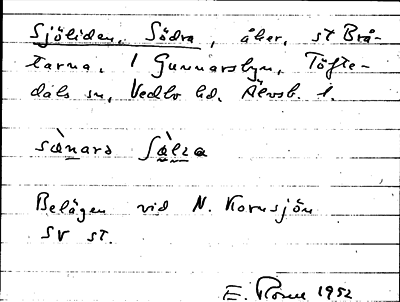 Sjöliden, Södra, åker, st Brå-
tarna, 1 Gunnarsbyn, Töfte-
dals sn, Vedbo hd. Älvsb. l.
sæ̀narə
Belägen vid N. Kornsjön
SV st.
E. 1952